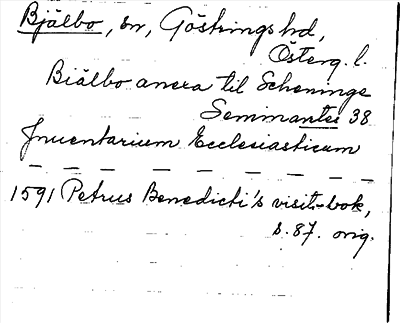 Bjälbo, sn, Göstrings hd,
Österg. l.
Biälbo anexa til Schenninge
Semmantes 38
Inuentarium Ecclesiasticum
— — — — — — — — —
1591 Petrus Benedicti's visit.-bok,
s. 87. orig.